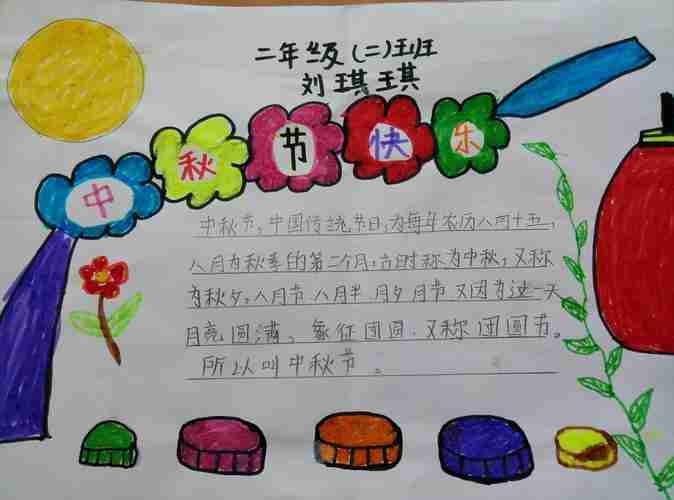 二年级(二)班
刘琪琪
中秋节快乐
中秋节,中国传统节日,为每年农历八月十五,
八月为秋季的第二个月,古时称为中秋,又称
为秋夕,八月节.八月半.月夕.月节 又因为这一天
月亮圆满,象征团圆.又称团圆节。
所以叫中秋节。